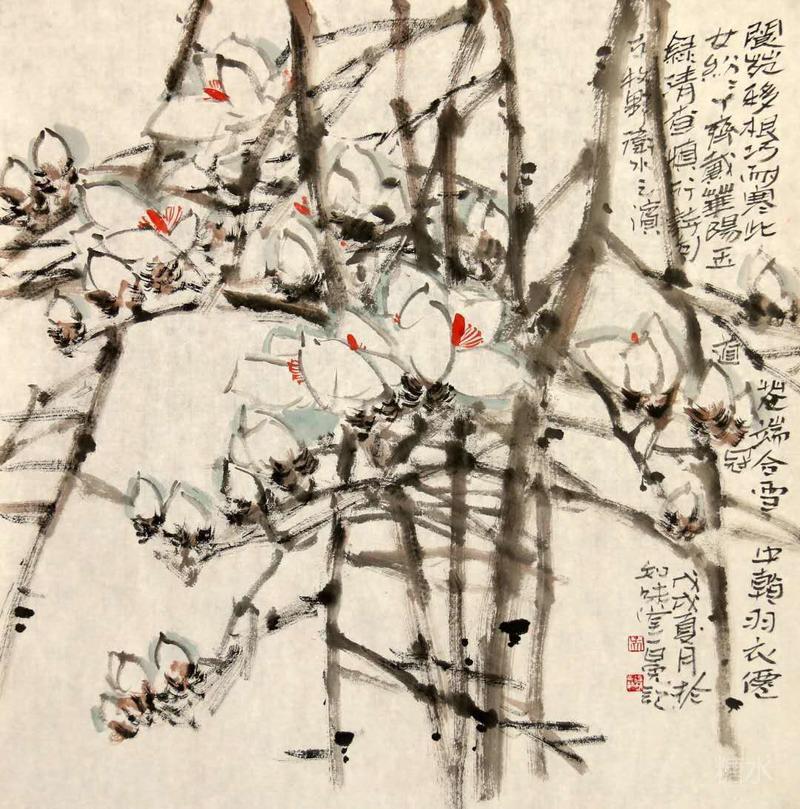 閬苑移根巧耐寒此花端合雪中看羽衣僊
女紛〻下齊戴華陽玉道冠
錄清查慎行詩句
於牧野衛水之濱
戊戌夏月於